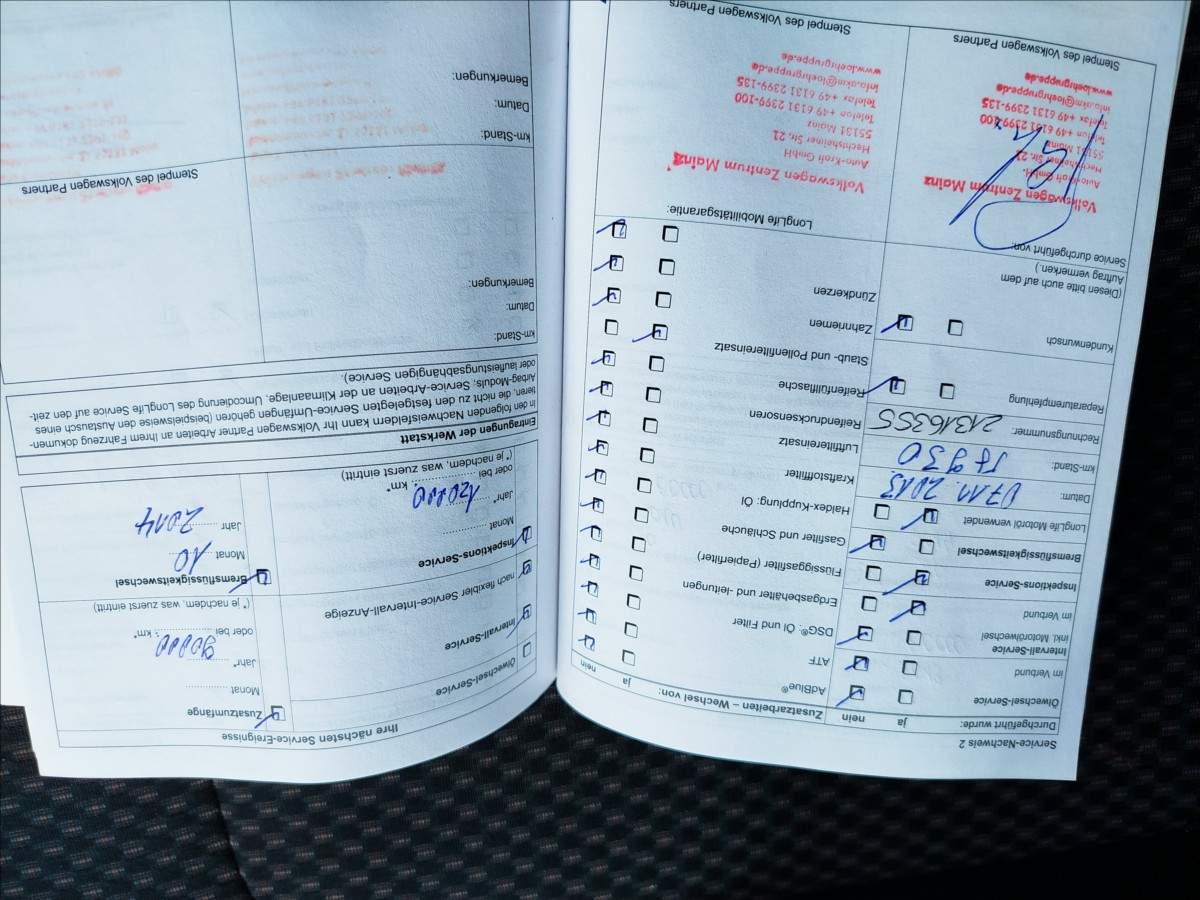 Service-Nachweis 2
Durchgeführt wurde: ja nein
Ölwechsel-Service
im Verbund
Intervall-Service
inkl. Motorölwechsel
im Verbund
Inspektions-Service
Bremsflüssigkeitswechsel
LongLife Motoröl verwendet
Datum: 07.11.2013
km-Stand: 57930
Rechnungsnummer: 21316355
Reparaturempfehlung
Kundenwunsch
(Diesen bitte auch auf dem
Auftrag vermerken.)
Service durchgeführt von:
Volkswagen Zentrum Mainz
Auto-Kraft GmbH
Hechtsheimer Str. 21
55131 Mainz
Telefon +49 6131 2399-100
Telefax +49 6131 2399-135
info.akm@loehrgruppe.de
www.loehrgruppe.de
Stempel des Volkswagen Partners
Zusatzarbeiten – Wechsel von: ja nein
AdBlue®
ATF
DSG®: Öl und Filter
Erdgasbehälter und -leitungen
Flüssiggasfilter (Papierfilter)
Gasfilter und Schläuche
Haldex-Kupplung: Öl
Kraftstofffilter
Luftfiltereinsatz
Reifendrucksensoren
Reifenfüllflasche
Staub- und Pollenfiltereinsatz
Zahnriemen
Zündkerzen
LongLife Mobilitätsgarantie:
Volkswagen Zentrum Mainz
Auto-Kraft GmbH
Hechtsheimer Str. 21
55131 Mainz
Telefon +49 6131 2399-100
Telefax +49 6131 2399-135
info.akm@loehrgruppe.de
www.loehrgruppe.de
Stempel des Volkswagen Partners
Ihre nächsten Service-Ereignisse
Ölwechsel-Service
Intervall-Service
nach flexibler Service-Intervall-Anzeige
Inspektions-Service
Monat
Jahr*
oder bei 120000 km*
(* je nachdem, was zuerst eintritt)
Zusatzumfänge
Monat
Jahr*
oder bei 90000 km*
(* je nachdem, was zuerst eintritt)
Bremsflüssigkeitswechsel
Monat 10
Jahr 2014
Eintragungen der Werkstatt
In den folgenden Nachweisfeldern kann Ihr Volkswagen Partner Arbeiten an Ihrem Fahrzeug dokumen-
tieren, die nicht zu den festgelegten Service-Umfängen gehören (beispielsweise den Austausch eines
Airbag-Moduls, Service-Arbeiten an der Klimaanlage, Umcodierung des LongLife Service auf den zeit-
oder laufleistungsabhängigen Service).
km-Stand:
Datum:
Bemerkungen:
Stempel des Volkswagen Partners
km-Stand:
Datum:
Bemerkungen: